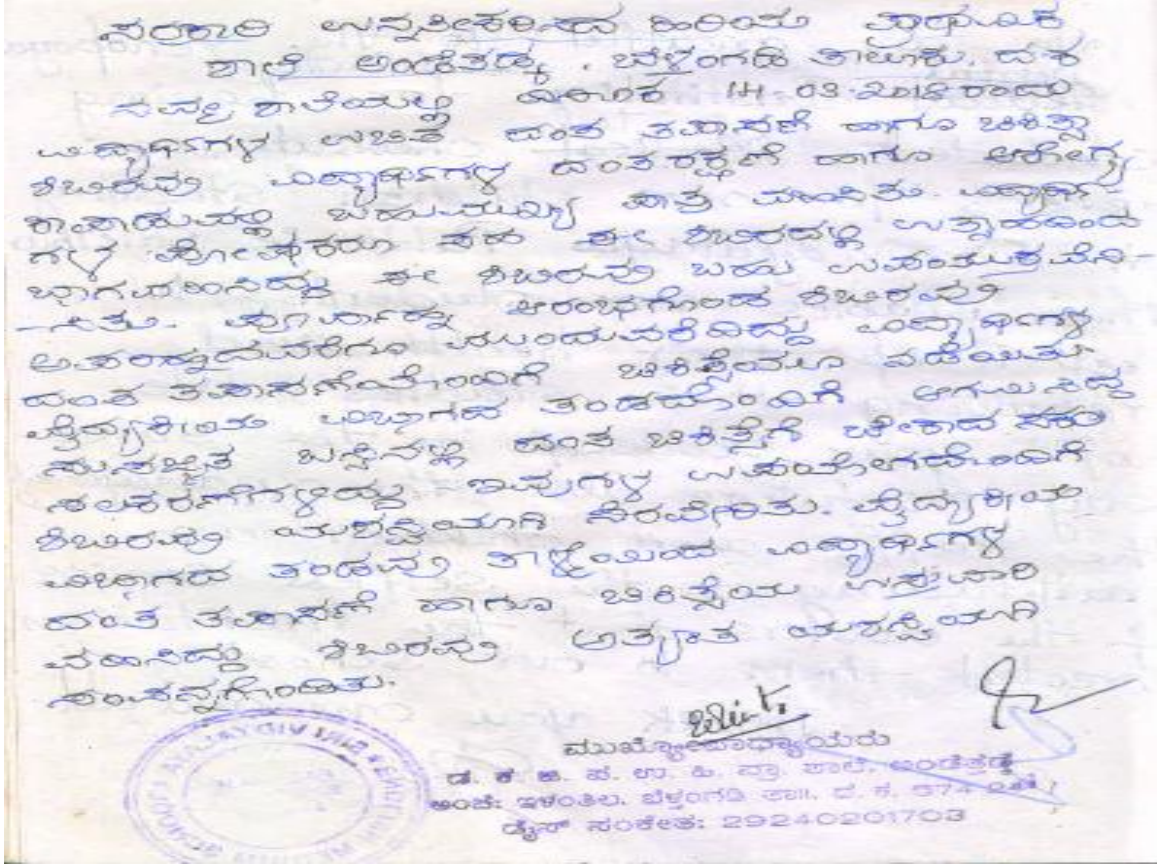 ಸರಕಾರಿ ಉನ್ನತೀಕರಿಸಿದ ಹಿರಿಯ ಪ್ರಾಥಮಿಕ
ಶಾಲೆ ಅಂಡೆತಡ್ಕ. ಬೆಳ್ತಂಗಡಿ ತಾಲೂಕು. ದ.ಕ
ನಮ್ಮ ಶಾಲೆಯಲ್ಲಿ ದಿನಾಂಕ 14-03-2018 ರಂದು
ವಿದ್ಯಾರ್ಥಿಗಳ ಉಚಿತ ದಂತ ತಪಾಸಣೆ ಹಾಗೂ ಚಿಕಿತ್ಸಾ
ಶಿಬಿರವು ವಿದ್ಯಾರ್ಥಿಗಳ ದಂತರಕ್ಷಣೆ ಹಾಗೂ ಆರೋಗ್ಯ
ಕಾಪಾಡುವಲ್ಲಿ ಬಹುಮುಖ್ಯ ಪಾತ್ರ ವಹಿಸಿತು. ವಿದ್ಯಾರ್ಥಿ
ಗಳ ಪೋಷಕರೂ ಸಹ ಈ ಶಿಬಿರದಲ್ಲಿ ಉತ್ಸಾಹದಿಂದ
ಭಾಗವಹಿಸಿದ್ದು ಈ ಶಿಬಿರವು ಬಹು ಉಪಯುಕ್ತವೆನಿ-
-ಸಿತು. ಪೂರ್ವಾಹ್ನ ಆರಂಭಗೊಂಡ ಶಿಬಿರವು
ಅಪರಾಹ್ನದವರೆಗೂ ಮುಂದುವರೆದಿದ್ದು ವಿದ್ಯಾರ್ಥಿಗಳ
ದಂತ ತಪಾಸಣೆಯೊಂದಿಗೆ ಚಿಕಿತ್ಸೆಯೂ ನಡೆಯಿತು.
ವೈದ್ಯಕೀಯ ವಿಭಾಗದ ತಂಡದೊಂದಿಗೆ ಆಗಮಿಸಿದ್ದ
ಸುಸಜ್ಜಿತ ಬಸ್ಸಿನಲ್ಲಿ ದಂತ ಚಿಕಿತ್ಸೆಗೆ ಬೇಕಾದ ಸಕಲ
ಸಲಕರಣೆಗಳಿದ್ದು ಇವುಗಳ ಉಪಯೋಗದೊಂದಿಗೆ
ಶಿಬಿರವು ಯಶಸ್ವಿಯಾಗಿ ನೆರವೇರಿತು. ವೈದ್ಯಕೀಯ
ವಿಭಾಗದ ತಂಡವು ತಾಳ್ಮೆಯಿಂದ ವಿದ್ಯಾರ್ಥಿಗಳ
ದಂತ ತಪಾಸಣೆ ಹಾಗೂ ಚಿಕಿತ್ಸೆಯ ಉಸ್ತುವಾರಿ
ವಹಿಸಿದ್ದು ಶಿಬಿರವು ಅತ್ಯಂತ ಯಶಸ್ವಿಯಾಗಿ
ಸಂಪನ್ನಗೊಂಡಿತು.
ಮುಖ್ಯೋಪಾಧ್ಯಾಯರು
ದ. ಕ. ಜಿ. ಪ. ಉ. ಹಿ. ಪ್ರಾ. ಶಾಲೆ, ಅಂಡೆತ್ತಡ್ಕ
ಅಂಚೆ: ಇಳಂತಿಲ, ಬೆಳ್ತಂಗಡಿ ತಾ॥, ದ. ಕ. 574
ಡೈಸ್ ಸಂಕೇತ: 29240201703